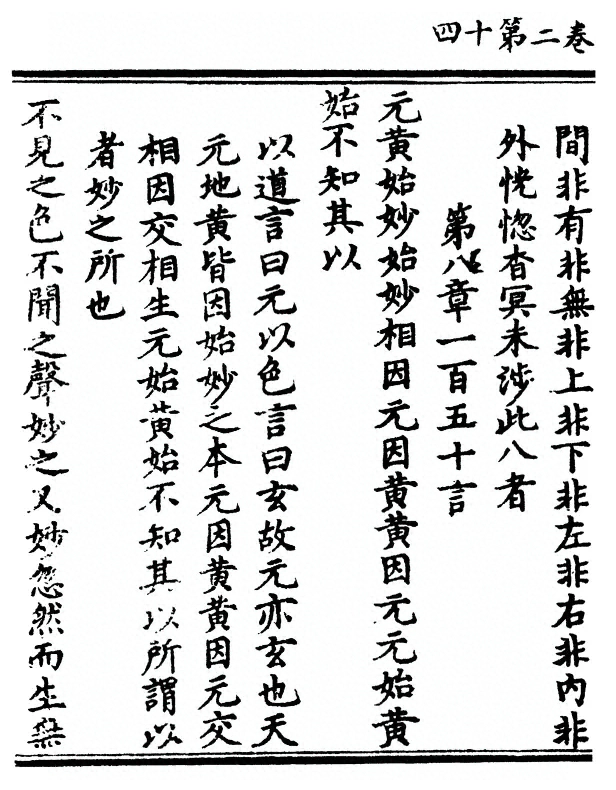 四十第二卷
間非有非無非上非下非左非右非內非
外恍惚杳冥未涉此八者
第八章一百五十言
元黃始妙始妙相因元因黃黃因元元始黃
始不知其以
以道言曰元以色言曰玄故元亦玄也天
元地黃皆因始妙之本元因黃黃因元交
相因交相生元始黃始不知其以所謂以
者妙之所也
不見之色不聞之聲妙之又妙忽然而生無